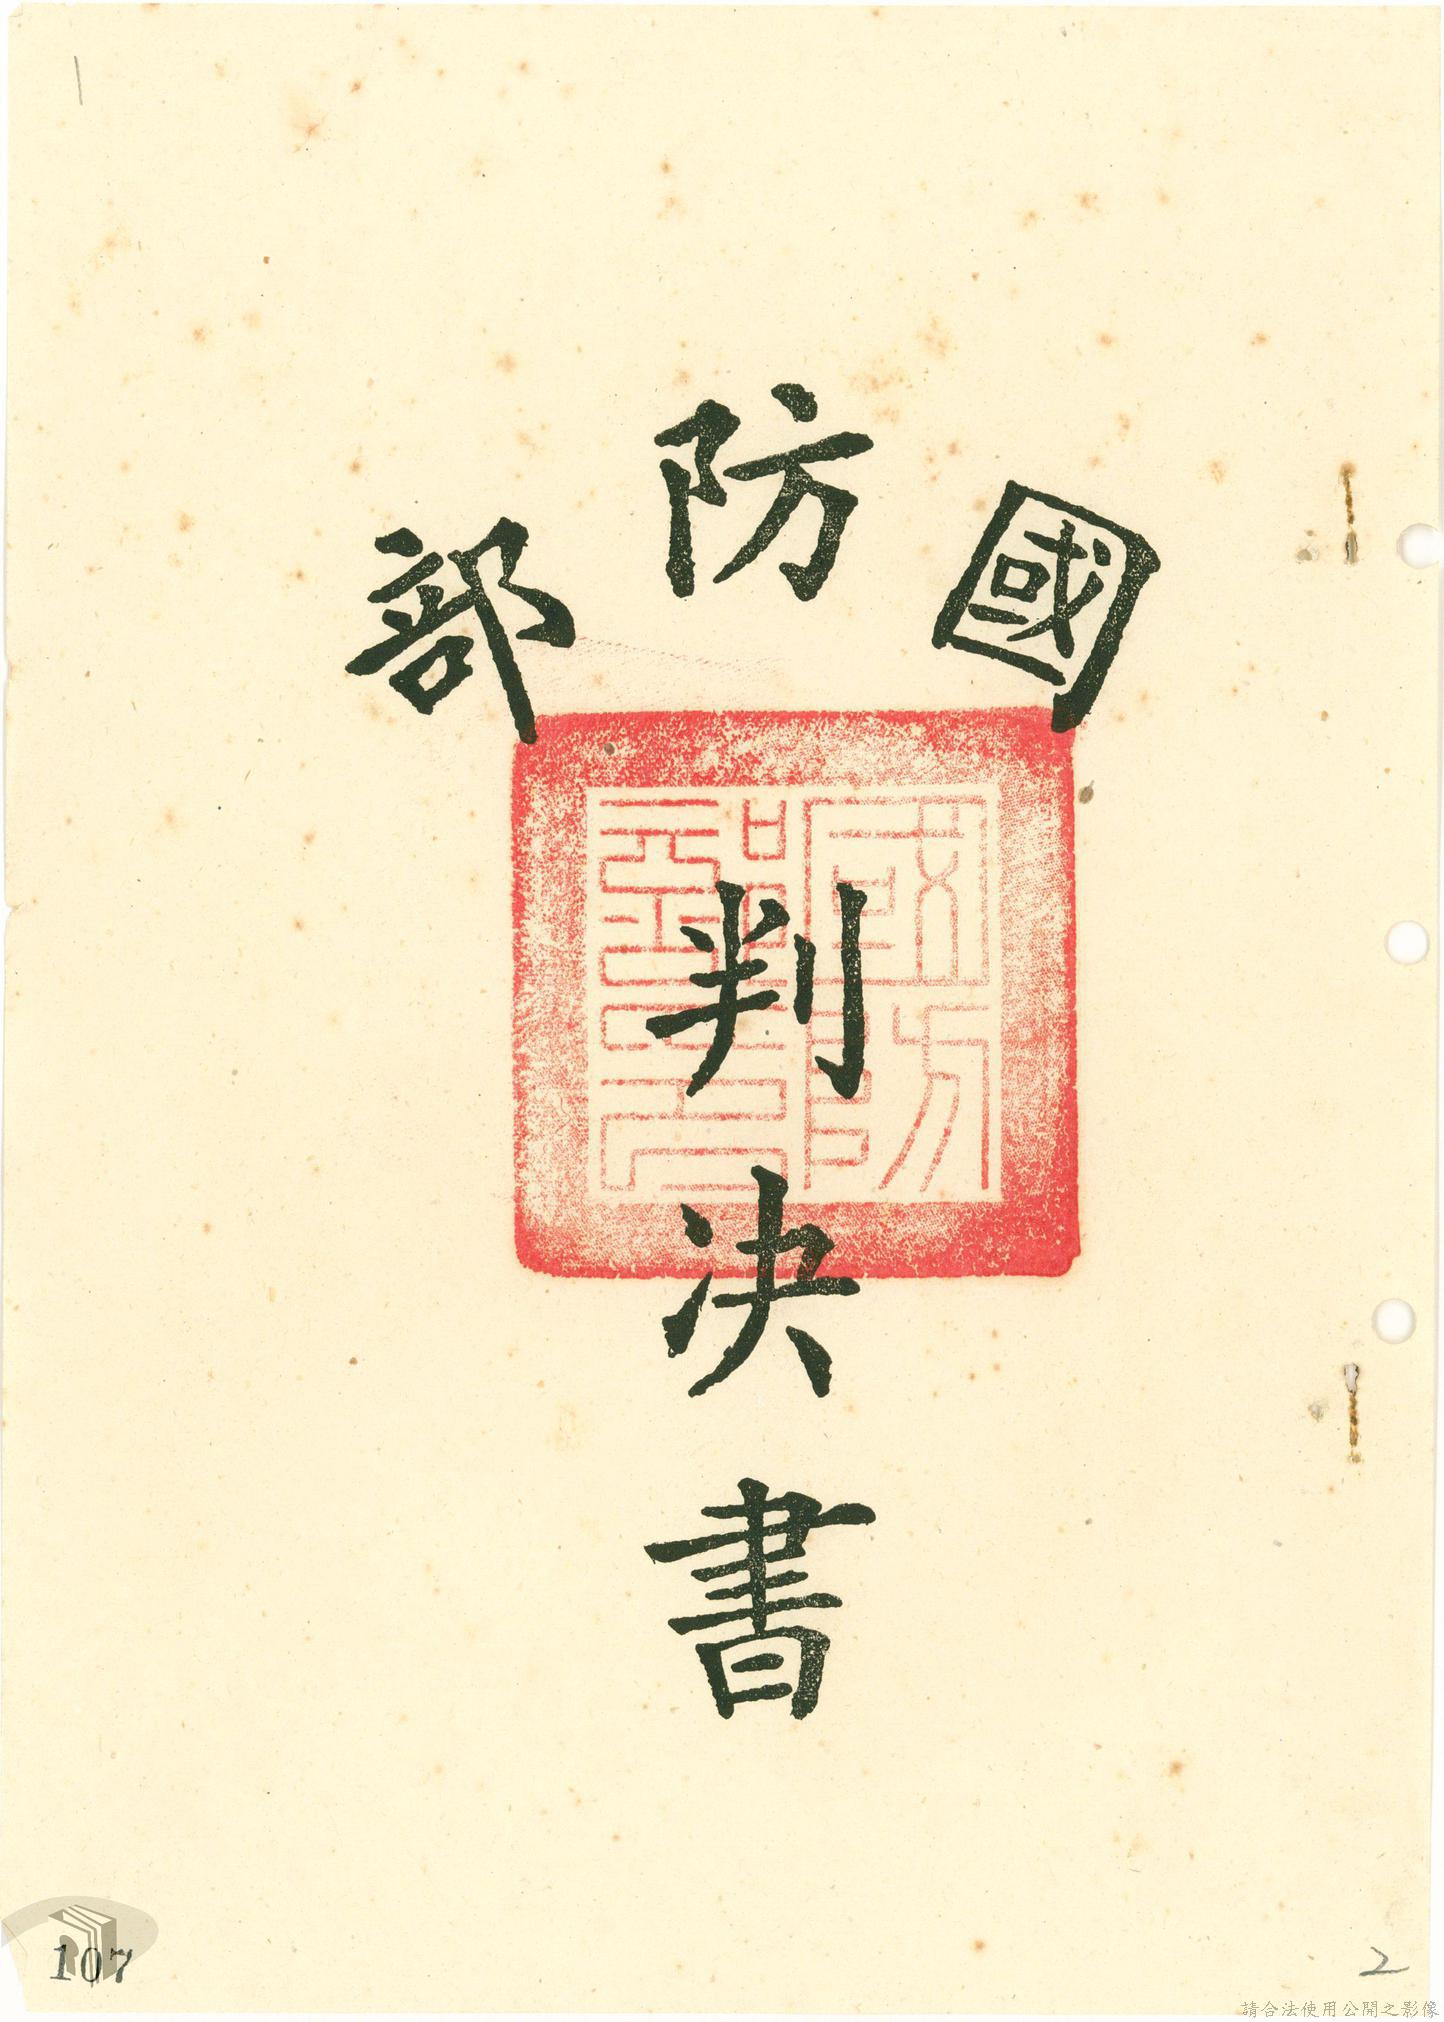 國防部
判決書
國防部印
107
2
請合法使用公開之影像